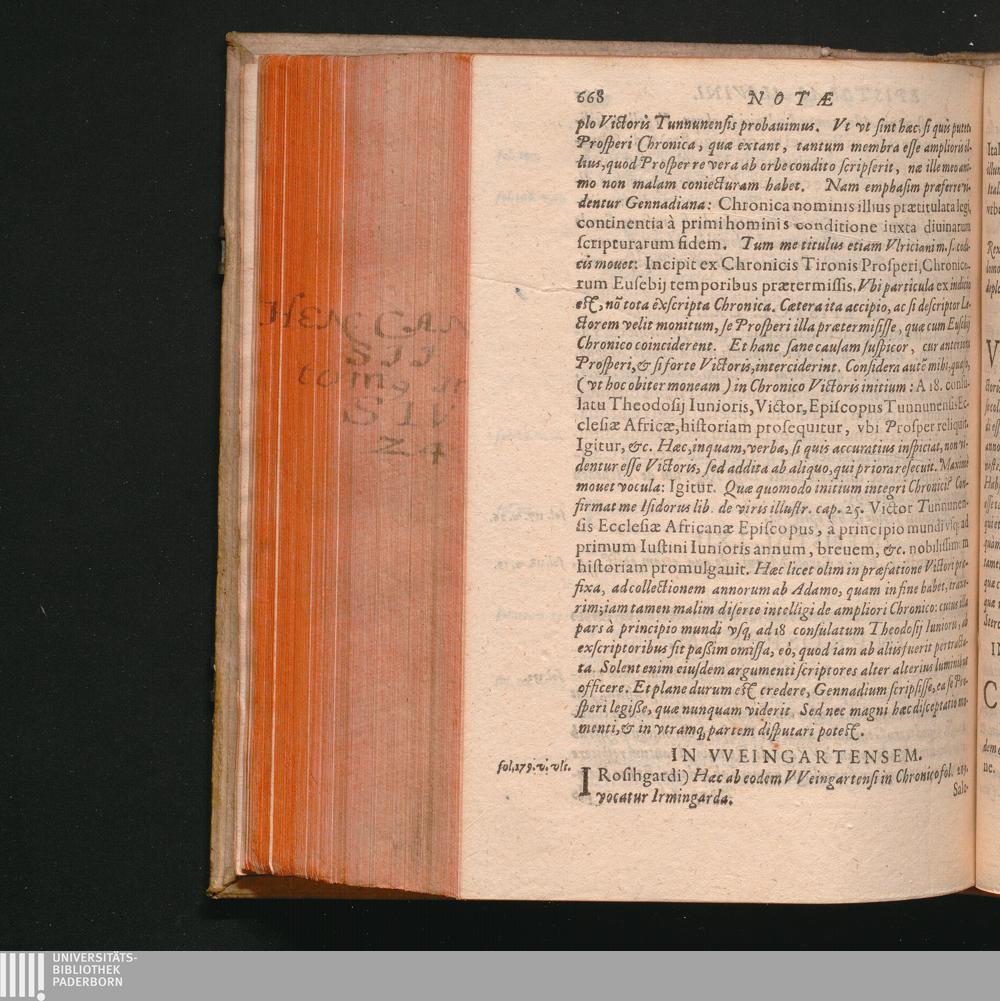 668 NOTÆ
plo Victoris Tunnunensis probauimus. Vt vt sint hæc, si quis putet
Prosperi Chronica, quæ extant, tantum membra esse amplioris il-
lius, quod Prosper re vera ab orbe condito scripserit, næ ille meo ani-
mo non malam coniecturam habet. Nam emphasim præferre vi-
dentur Gennadiana: Chronica nominis illius prætitulata legi,
continentia à primi hominis conditione iuxta diuinarum
scripturarum fidem. Tum me titulus etiam Vlricianim. s. codi-
cis mouet: Incipit ex Chronicis Tironis Prosperi, Chronico-
rum Eusebij temporibus prætermissis. Vbi particula ex indicio
est, nō tota exscripta Chronica. Cætera ita accipio, ac si descriptor Le-
ctorem velit monitum, se Prosperi illa prætermisisse, quæ cum Eusebij
Chronico coinciderent. Et hanc sane causam suspicor, cur anteriora
Prosperi, & si forte Victoris, interciderint. Considera autē mihi, quæso,
(vt hoc obiter moneam) in Chronico Victoris initium: A 18. consu-
latu Theodosij Iunioris, Victor, Episcopus Tunnunensis Ec-
clesiæ Africæ, historiam prosequitur, vbi Prosper reliquit.
Igitur, &c. Hæc, inquam, verba, si quis accuratius inspiciat, non vi-
dentur esse Victoris, sed addita ab aliquo, qui priora resecuit. Maximè
mouet vocula: Igitur. Quæ quomodo initium integri Chronici? Con-
firmat me Isidorus lib. de viris illustr. cap. 25. Victor Tunnunen-
sis Ecclesiæ Africanæ Episcopus, à principio mundi vsq; ad
primum Iustini Iunioris annum, breuem, &c. nobilissimam
historiam promulgauit. Hæc licet olim in præfatione Victori præ-
fixa, ad collectionem annorum ab Adamo, quam in fine habet, traxe-
rim; iam tamen malim diserte intelligi de ampliori Chronico: cuius illa
pars à principio mundi vsq; ad 18 consulatum Theodosij Iunioris, ab
exscriptoribus sit passim omissa, eò, quod iam ab aliis fuerit pertracta-
ta. Solent enim eiusdem argumenti scriptores alter alterius luminibus
officere. Et plane durum est credere, Gennadium scripsisse, ea se Pro-
speri legisse, quæ nunquam viderit. Sed nec magni hæc disceptatio mo-
menti, & in vtramq; partem disputari potest.
IN VVEINGARTENSEM.
fol. 179. v. vlt.
IRosihgardi) Hæc ab eodem VVeingartensi in Chronico fol. 289.
vocatur Irmingarda.
Salo-
UNIVERSITÄTS-
BIBLIOTHEK
PADERBORN